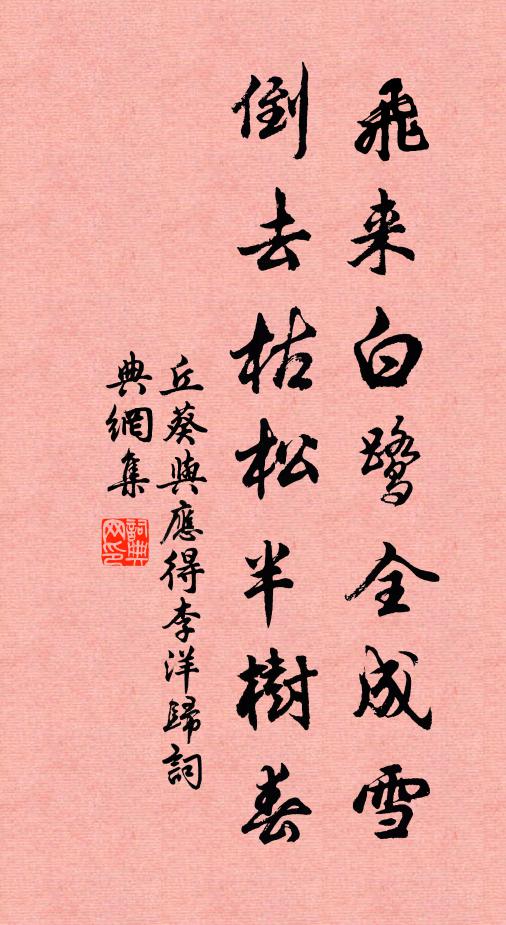 飛来白鹭全成雪
倒去枯松半樹春
丘葵與應得李洋歸詞
典網集
詞典
网印